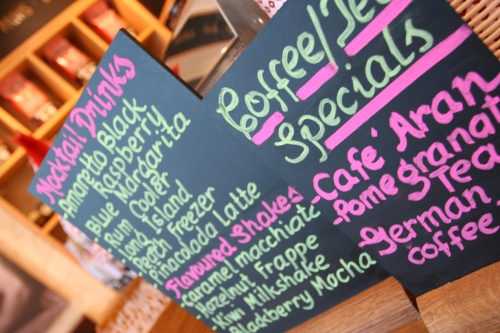 Mocktail Drinks
Amaretto Black
Raspberry
Blue Margarita
Rum Cooler
Long Island
Peach Freezer
Pinacolada Latte
Flavoured Shakes
-Caramel macchiato
-Hazelnut Frappe
-Kiwi Milkshake
-Blackberry Mocha
Coffee/Tea
Specials
-Café Aran
-Pomegranate
Tea
-German
coffee